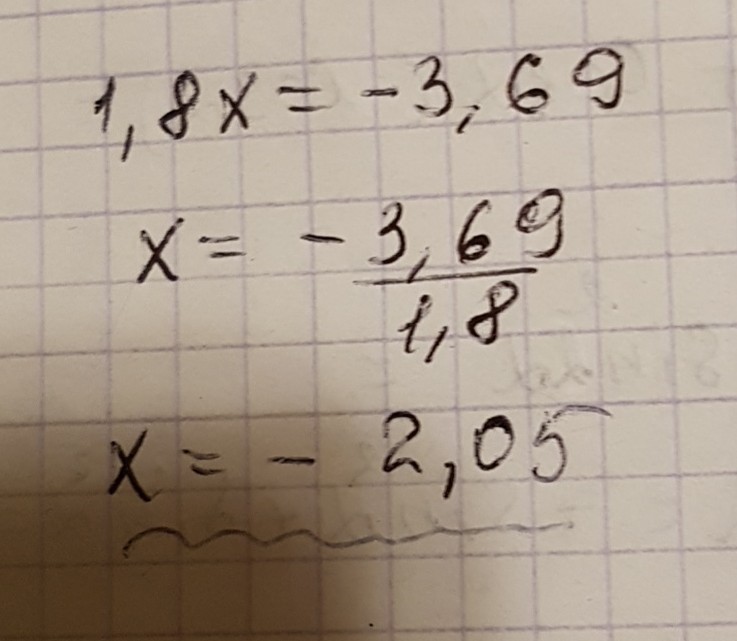 1,8x = -3,69
x = - 3,69 / 1,8
x = - 2,05